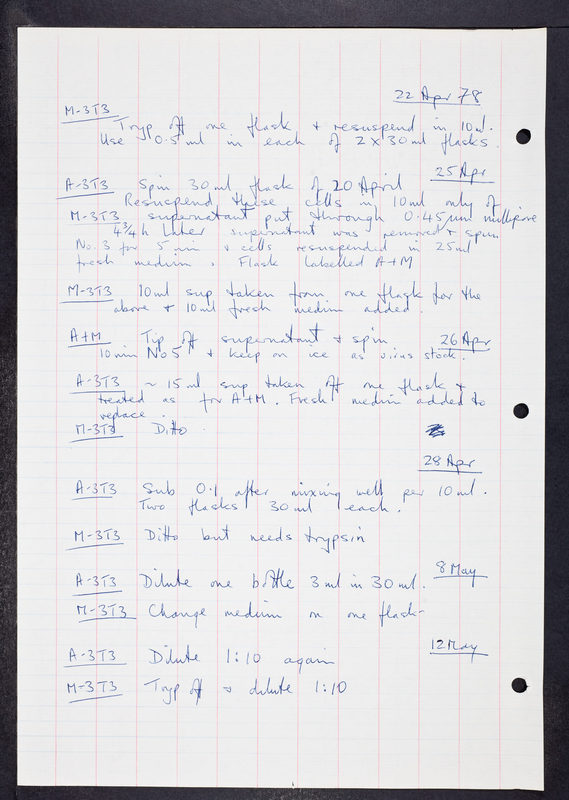 22 Apr 78
M-3T3
Tryp off one flask + resuspend in 10ml.
Use 0.5ml in each of 2 x 30ml flasks.
25 Apr
A-3T3 Spin 30ml flask of 20 April
Resuspend these cells in 10ml only of
M-3T3 supernatant put through 0.45µm millipore
4¾h later supernatant was removed + spun
No. 3 for 5 min + cells resuspended in 25ml
fresh medium. Flask labelled A+M
M-3T3 10ml sup taken from one flask for the
above + 10ml fresh medium added.
A+M Tip off supernatant + spin 26 Apr
10min No 5 + keep on ice as virus stock.
A-3T3 ~ 15ml sup taken off one flask +
treated as for A+M. Fresh medium added to
replace.
M-3T3 Ditto.
28 Apr
A-3T3 Sub 0.1 after mixing well per 10ml.
Two flasks 30ml each.
M-3T3 Ditto but needs trypsin
8 May
A-3T3 Dilute one bottle 3ml in 30ml.
M-3T3 Change medium on one flask
12 May
A-3T3 Dilute 1:10 again
M-3T3 Tryp off + dilute 1:10